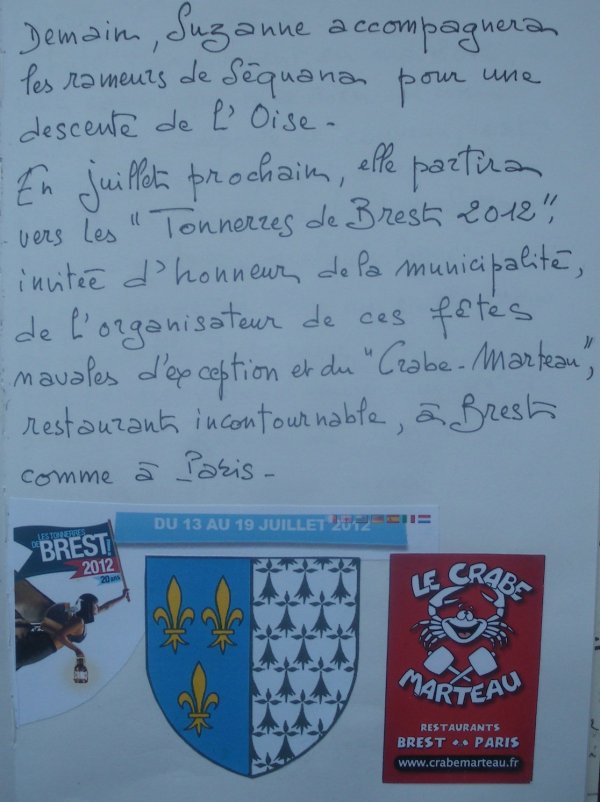 Demain, Suzanne accompagnera
les rameurs de Séquana pour une
descente de l'Oise.
En juillet prochain, elle partira
vers les "Tonnerres de Brest 2012",
invitée d'honneur de la municipalité,
de l'organisateur de ces fêtes
navales d'exception et du "Crabe-Marteau",
restaurant incontournable, à Brest
comme à Paris.
DU 13 AU 19 JUILLET 2012
LES TONNERRES
DE BREST
2012
20 ans
LE CRABE
MARTEAU
RESTAURANTS
BREST •• PARIS
www.crabemarteau.fr